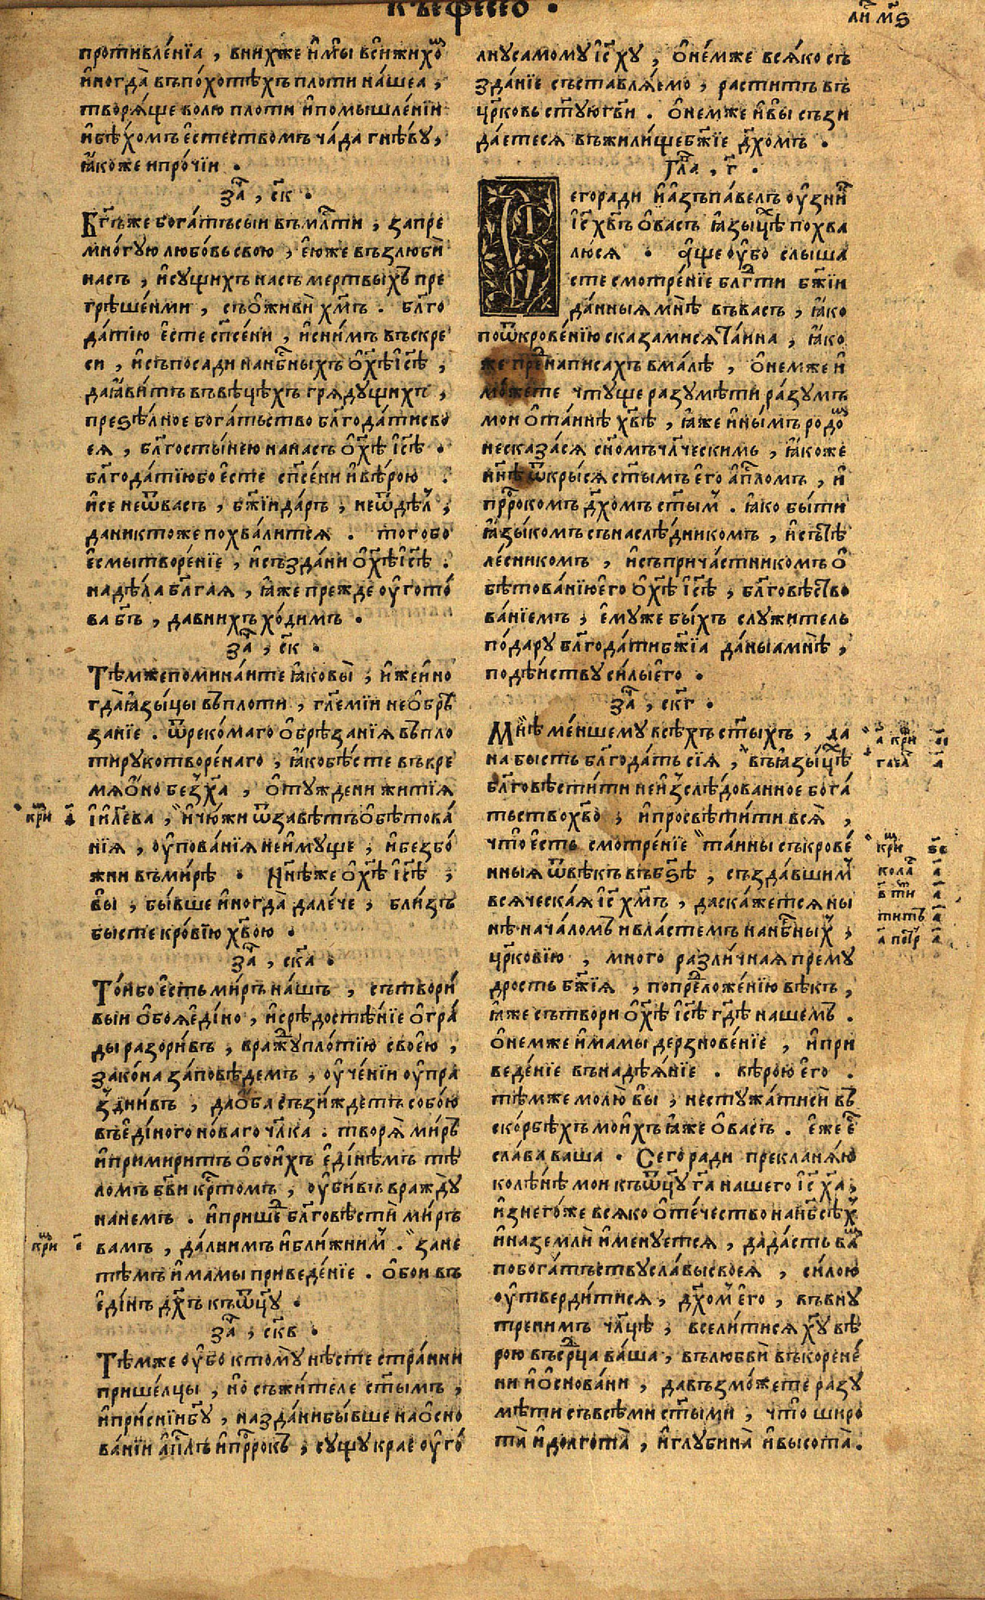 къефесео .
ли мѕ
противленїа , внихже и мы вси жихоⷨ
иногда въпохотѣхъ плоти нашеа ,
творяще волю плоти ипомышленїи
ибѣхомъ естествомъ чада гнѣву,
якоже ипрочїи .
заⷱ , ск .
Бг҃ъже богатъсыи въмл҃ти , запре
многую любовь свою , еюже възлюби
насъ , исущихъ насъ мертвыхъ пре
грѣшенми , съоживи хм҃ъ . блг҃о
датїю есте сп҃сени , иснимъ въскре
си , исъпосади нанб҃ныхъ охѣ҃ісѣ҃ ,
даявитъ въвѣцѣхъ грядущихъ ,
презѣлное богатьство блг҃одатисво
ея , блг҃остынею нанасъ охѣ҃ ісѣ҃ .
блг҃одатїюбо есте сп҃сени ивѣрою .
исе неѿвасъ , бж҃їидаръ , неѿдѣл ,
даниктоже похвалится . тогобо
есмы творенїе , исъздани охѣ҃ісѣ҃ .
надѣла блг҃ая , яже прежде оугото
ва бг҃ъ , давнихъ ходимъ .
заⷱ , ск .
Тѣмжепоминаите яковы , ижеино
гдаязыцы въплоти , гл҃еміи необрѣ
занїе . ѿрекомаго обрѣзанїя въпло
тирукотворенаго , якобѣсте въвре
мя оно безха҃ , отуждени житїя
іил҃ева , ичюжи ѿзавѣтъ обѣтова
нїя , оупованїя неимуще , ибезбо
жни въмирѣ . Нн҃ѣже охѣ҃ ісѣ҃ ,
вы , бывше иногда далече , близъ
бысте кровїю хв҃ою .
заⷱ , ска .
Тоибо есть миръ нашъ , сътвори
выи обоя едино , исредостѣнїе огра
ды разоривъ , вражду плотїю своею ,
закона заповѣдемъ , оученїи оупра
зднивъ , даоба съзиждетъ собою
въединого новаго чл҃ка . творя миръ
ипримиритъ обоихъ единѣмъ тѣ
ломъ бг҃ви крⷭ҇томъ , оубивъ вражду
нанемъ . ипришеⷣ блг҃овѣсти миръ
вамъ , далнимъ иближним . зане
тѣмъ имамы приведенїе . обои въ
единъ дх҃ъ къѿц҃у .
заⷱ , скв .
Тѣмже оубо ктому нѣсте странни
пришелцы , но съжителе ст҃ымъ ,
иприснїибг҃у , наздани бывше наосно
ванїи ап҃лъ ипрⷪ҇рокъ , сущу краеоуго
лнусамому іс҃ху҃ , онемже всяко съ
зданїе съставляемо , раститъ въ
цр҃ковь ст҃ую гв҃и . онемже ивы съзи
даетеся въжилище бж҃їе дх҃омъ .
гла , г҃ .
Сегоради иазъ павелъ оузни
іс҃ хв҃ъ овасъ языцѣ похва
люся . аще оубо слыша
сте смотренїе блг҃ти бж҃їи
данныя мнѣ въвасъ , яко
поѿкровенїю сказамися таина , яко
же преⷣнаписахъ вмалѣ , онемже и
можете чтуще разумѣти разумъ
мои отаинѣ хв҃ѣ , яже инымъ родоⷨ
несказася сномъ чл҃ческимь , якоже
нн҃ѣ ѿкрыся ст҃ымъ его ап҃ломъ , и
прⷪ҇рокомъ дх҃омъ ст҃ым . яко быти
языкомъ сънаслѣдникомъ , исътѣ
лесникомъ , исъпричастникомъ о
бѣтованїюего охѣ҃ ісѣ҃ , блг҃овѣство
ванїемъ ; емуже быхъ служитель
подару блг҃одати бж҃їа даныа мнѣ ,
подѣиству силы его .
заⷱ , скг .
Мнѣ меншему всѣхъ ст҃ыхъ , да
на бысть блг҃одать сїя , въязыцѣ
благовѣстити неизслѣдованное бога
тьство хв҃о ; ипросвѣтити вся ,
что есть смотренїе таины съкрове
нныя ѿвѣкъ въбз҃ѣ , създавшим
всяческая іс҃ хм҃ъ , даскажется ны
нѣ началомъ ивластемъ нанб҃ных ,
цр҃ковїю , много различная прему
дрость бж҃їя , попреⷣложенїю вѣкъ ,
яже сътвори охѣ҃ ісѣ҃ гд҃ѣ нашемъ .
онемже имамы дерзновенїе , ипри
веденїе внадѣянїе . вѣрою его .
тѣмже молю вы , нестужатиси въ
скорбѣхъ моихъ яже овасъ . еже е
слава ваша . Сегоради прекланяю
колѣнѣ мои къѿц҃у га҃ нашего іс҃ ха҃ ,
изнегоже всяко отечество нанб҃сѣх
иназемли именуется , дадасть ваⷨ
побогатьству славы своея , силою
оутвердитися , дх҃ом его , вънꙋ
тренимъ чл҃цѣ , вселитися ху҃ вѣ
рою въсрⷣца ваша , вълюбви въкорене
ни иосновани , давъзможете разу
мѣти съвсѣми ст҃ыми , что широ
та идолгота , иглубина ивысота .
кѡⷬ҇и і
кѡⷬ҇и і
а кори еі
глава а
кори ве
кола а
в ти а
титъ а
а петр а